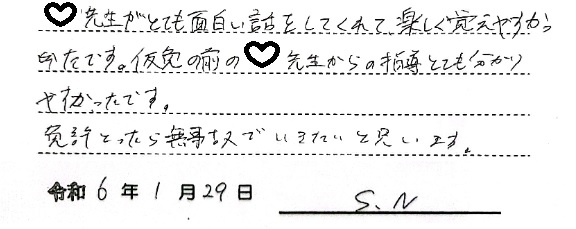 ♥先生がとても面白い話をしてくれて、楽しく覚えやすかっ
たです。仮免の前の♥先生からの指導とても分かり
やすかったです。
免許とったら無事故でいきたいと思います。
令和6年1月29日 S.N